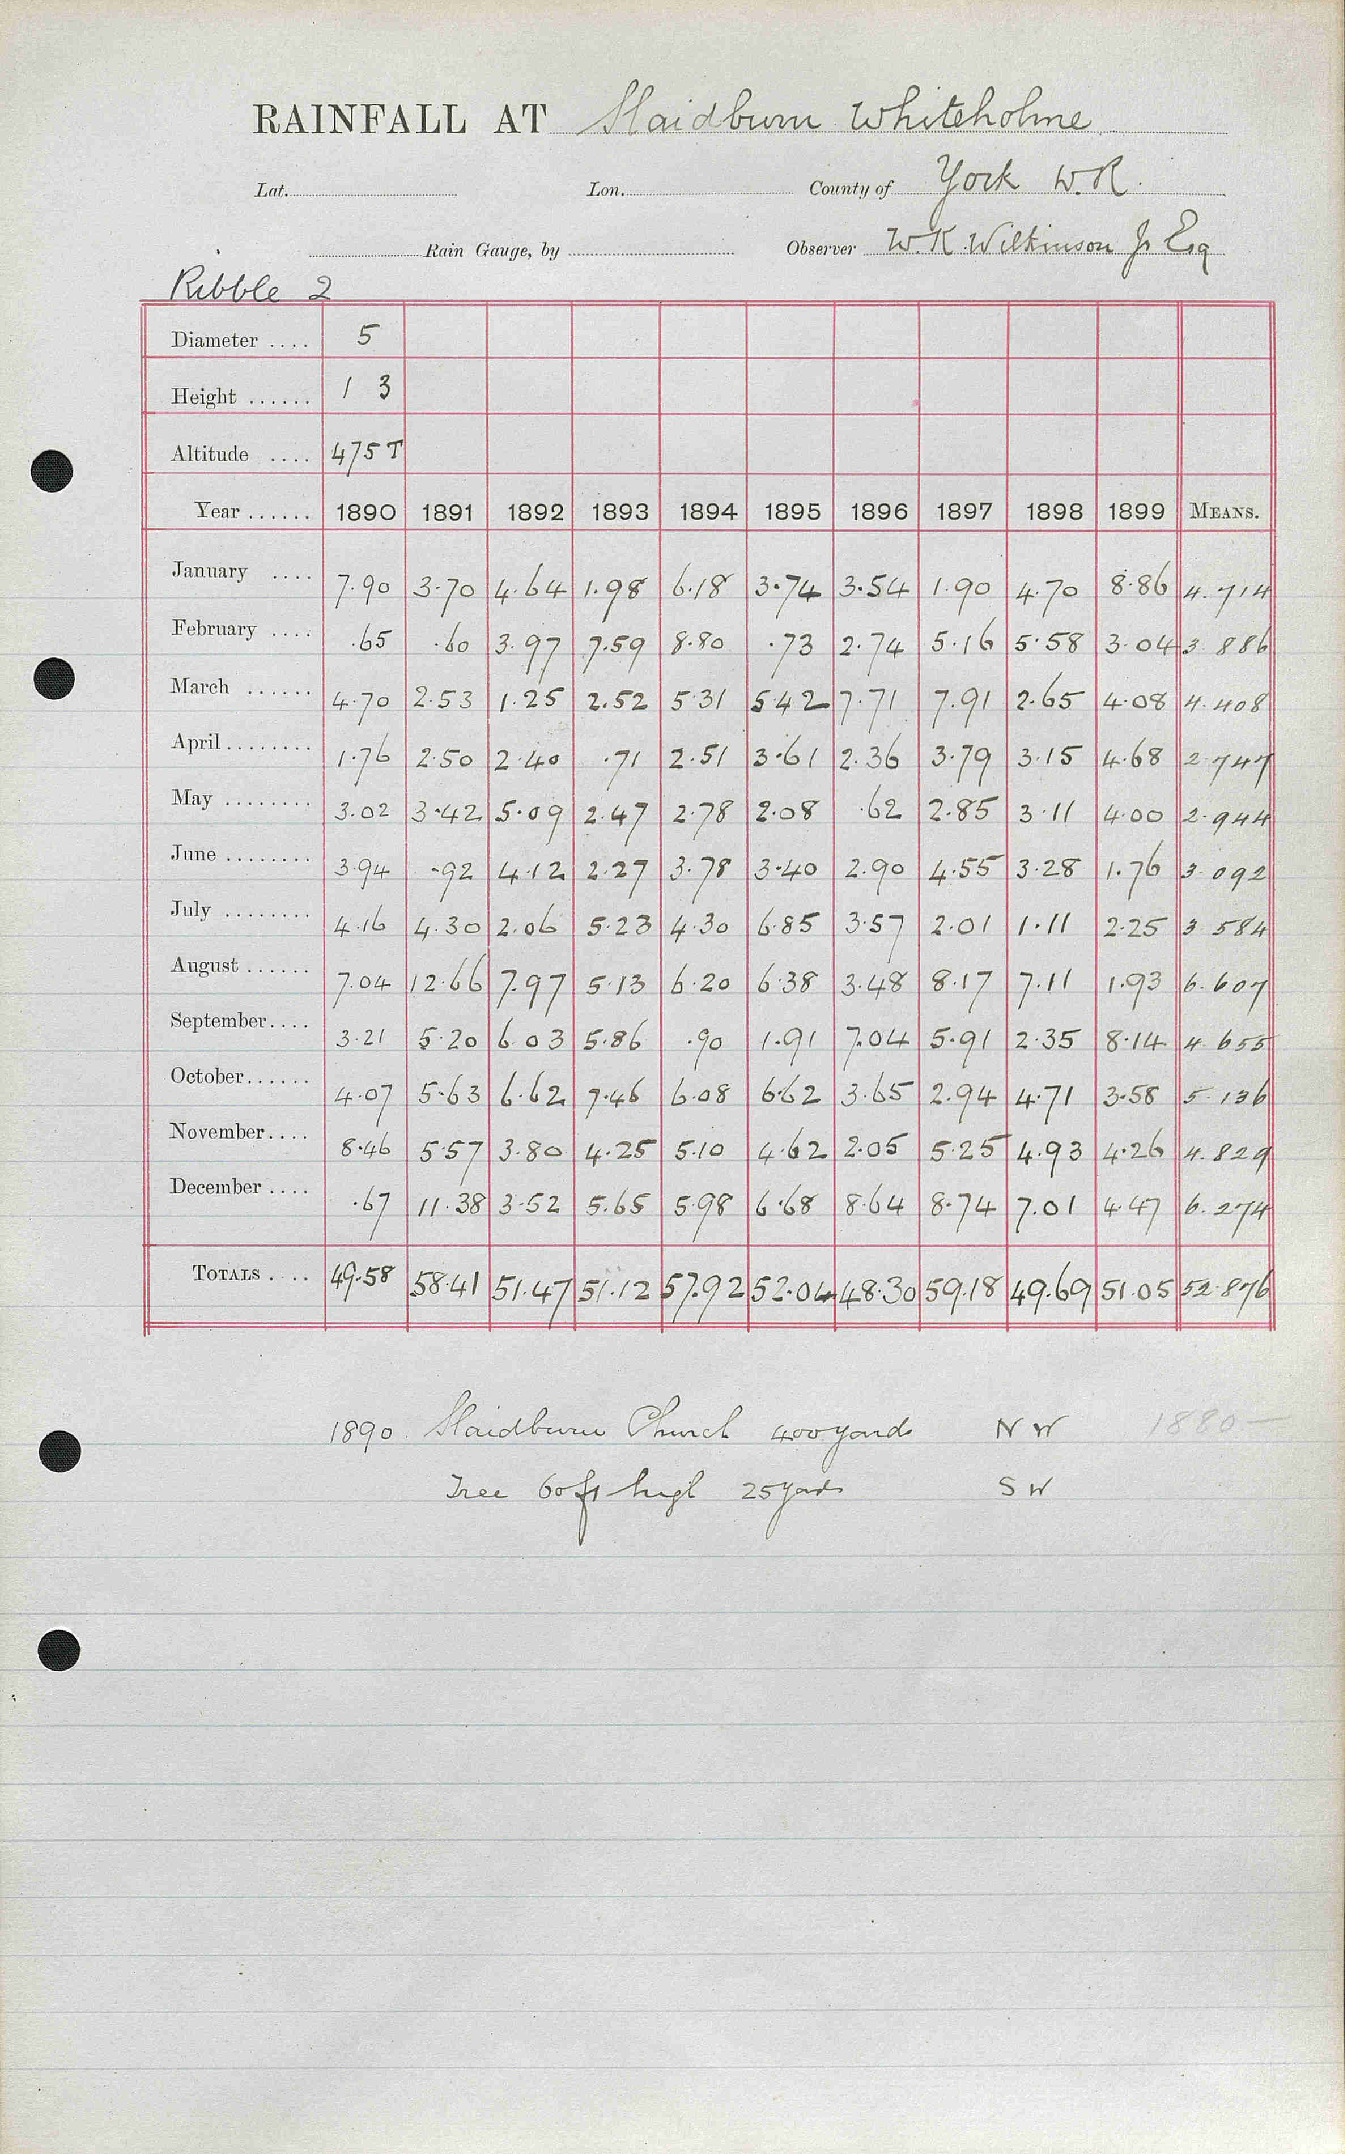 RAINFALL AT Slaidburn Whiteholme
Lat. Lon. County of York W.R.
Rain Gauge, by Observer W.K. Wilkinson Jr Esq
Ribble 2
Diameter .... 5
Height ...... 1 3
Altitude .... 475 T
Year ...... 1890 1891 1892 1893 1894 1895 1896 1897 1898 1899 MEANS.
January .... 7.90 3.70 4.64 1.98 6.18 3.74 3.54 1.90 4.70 8.86 4.714
February .... .65 .60 3.97 7.59 8.80 .73 2.74 5.16 5.58 3.04 3.886
March ...... 4.70 2.53 1.25 2.52 5.31 5.42 7.71 7.91 2.65 4.08 4.408
April ........ 1.76 2.50 2.40 .71 2.51 3.61 2.36 3.79 3.15 4.68 2.747
May ........ 3.02 3.42 5.09 2.47 2.78 2.08 .62 2.85 3.11 4.00 2.944
June ........ 3.94 .92 4.12 2.27 3.78 3.40 2.90 4.55 3.28 1.76 3.092
July ........ 4.16 4.30 2.06 5.23 4.30 6.85 3.57 2.01 1.11 2.25 3.584
August ...... 7.04 12.66 7.97 5.13 6.20 6.38 3.48 8.17 7.11 1.93 6.607
September.... 3.21 5.20 6.03 5.86 .90 1.91 7.04 5.91 2.35 8.14 4.655
October...... 4.07 5.63 6.62 7.46 6.08 6.62 3.65 2.94 4.71 3.58 5.136
November.... 8.46 5.57 3.80 4.25 5.10 4.62 2.05 5.25 4.93 4.26 4.829
December .... .67 11.38 3.52 5.65 5.98 6.68 8.64 8.74 7.01 4.47 6.274
TOTALS .... 49.58 58.41 51.47 51.12 57.92 52.04 48.30 59.18 49.69 51.05 52.876
1890 Slaidburn Church 400 yards N W 1880—
Tree 60 ft high 25 yards S W